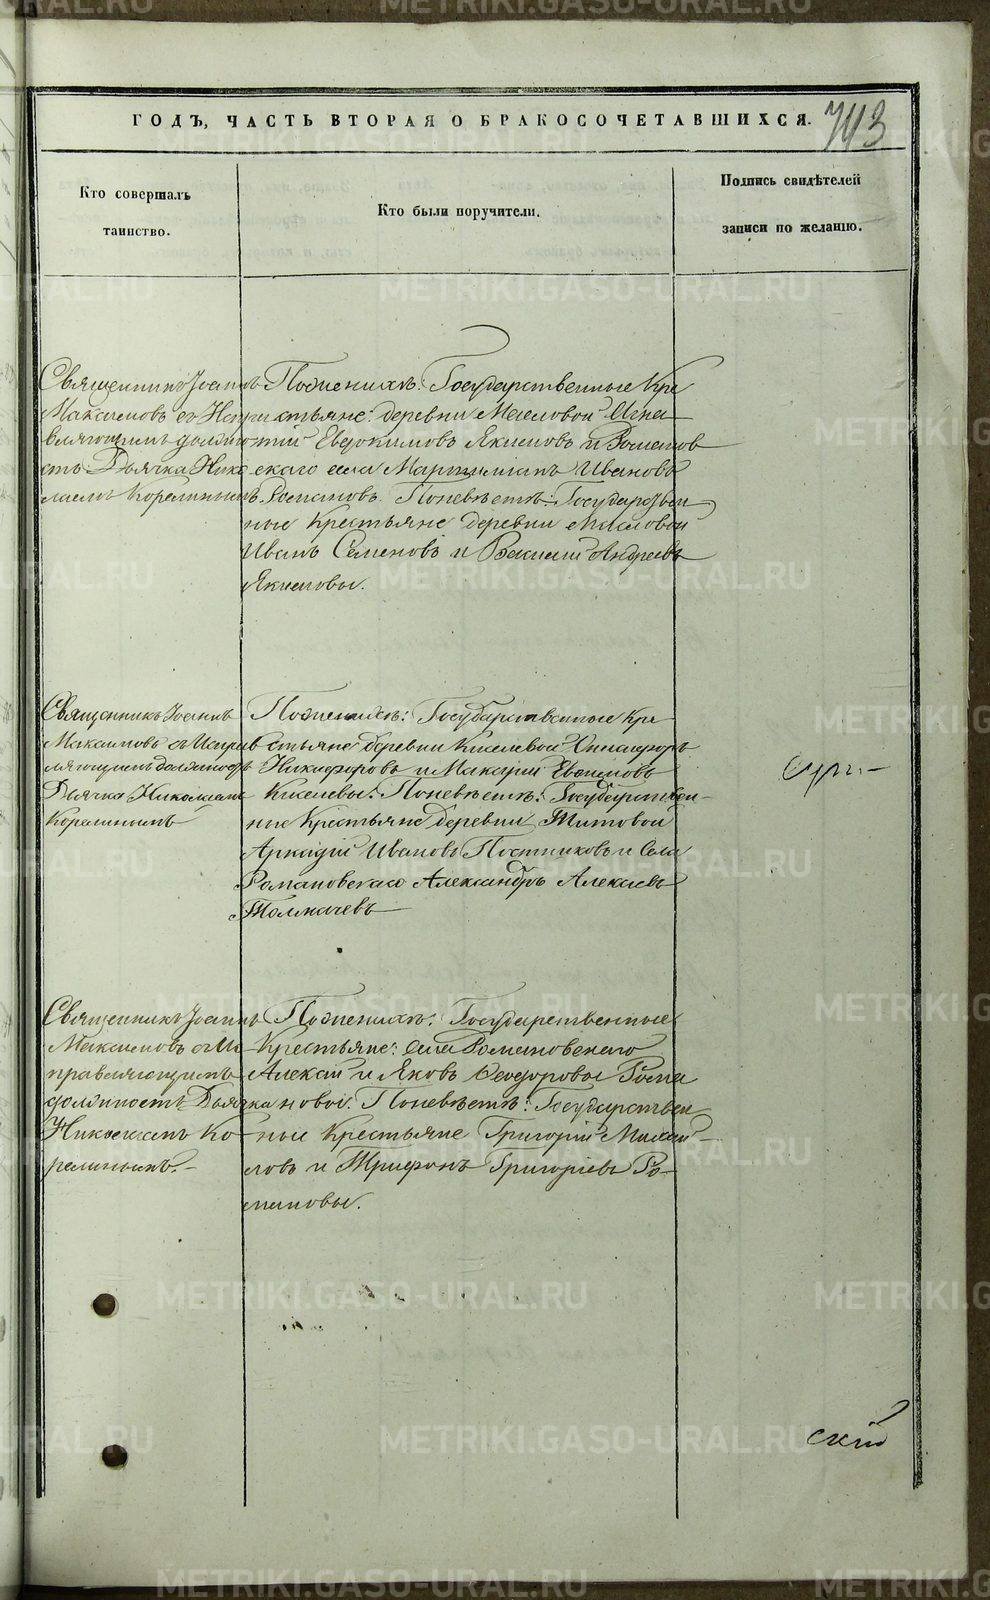 ГОДЪ, ЧАСТЬ ВТОРАЯ О БРАКОСОЧЕТАВШИХСЯ.
743
Кто совершалъ
таинство.
Кто были поручители.
Подпись свидѣтелей
записи по желанію.
Священникъ Іоаннъ
Максимовъ съ Испра
вляющимъ должно
сть Дьячка Нико
лаемъ Корелинымъ.
По женихѣ: Государственные Кре
стьяне: деревни Масловой Игна
тій Евдокимовъ Якимовъ и Романов
скаго села Мартиміанъ Ивановъ
Романовъ. По невѣстѣ: Государствен
ные Крестьяне деревни Масловой
Иванъ Семеновъ и Василій Андреевъ
Якимовы.
Священникъ Іоаннъ
Максимовъ съ Исправ
ляющимъ должность
Дьячка Николаемъ
Корелинымъ
По женихѣ: Государственные Кре
стьяне деревни Киселевой Никифоръ
Никифоровъ и Макарій Евфимовъ
Киселевы. По невѣстѣ: Государствен-
ные Крестьяне деревни Титовой
Аркадій Ивановъ Постниковъ и Села
Романовскаго Александръ Алексѣевъ
Толмачевъ
Священникъ Іоаннъ
Максимовъ съ Ис
правляющимъ
должность Дьячка
Николаемъ Ко-
релинымъ.
По женихѣ: Государственные
Крестьяне: села Романовскаго
Алексѣй и Яковъ Ѳеодоровы Рома
новы. По невѣстѣ: Государствен
ные Крестьяне Григорій Михай-
ловъ и Трифонъ Григорьевъ Ро-
мановы.
скій
METRIKI.GASO-URAL.RU